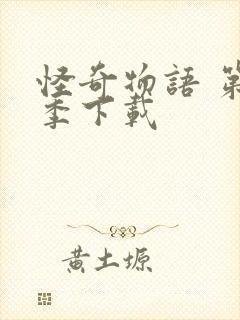 怪奇物語 第
季下載
黃土塬